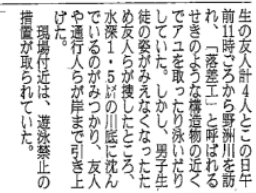 生の友人計4人とこの日午
前11時ごろから野洲川を訪
れ、「落差工」と呼ばれる
せきのような構造物の近く
でアユを取ったり泳いだり
していた。しかし、男子生
徒の姿がみえなくなったた
め友人らが捜したところ、
水深1・5㍍の川底に沈ん
でいるのがみつかり、友人
や通行人らが岸まで引き上
げた。
現場付近は、遊泳禁止の
措置が取られていた。